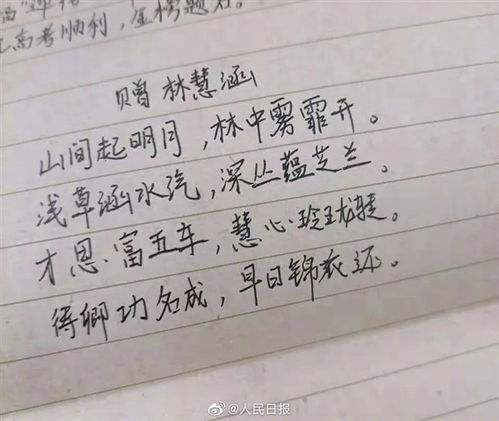 高考顺利，金榜题名。
赠 林慧涵
山间起明月，林中雾霏开。
浅草涵水汽，深丛蕴芝兰。
才思富五车，慧心玲珑。
得卿功名成，早日锦衣还。
@人民日报